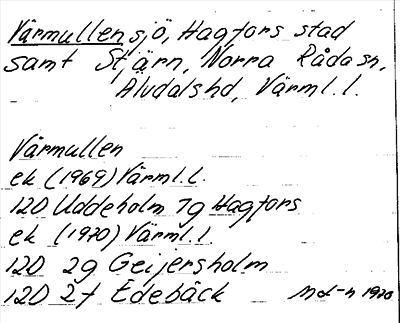 Värmullen sjö, Hagfors stad
samt Stjärn, Norra Råda sn,
Älvdals hd, Värml. l.
Värmullen
ek (1969) Värml. l.
12D Uddeholm 7g Hagfors
ek (1970) Värml. l.
12D 2g Geijersholm
12D 2f Edebäck Md-n 1970